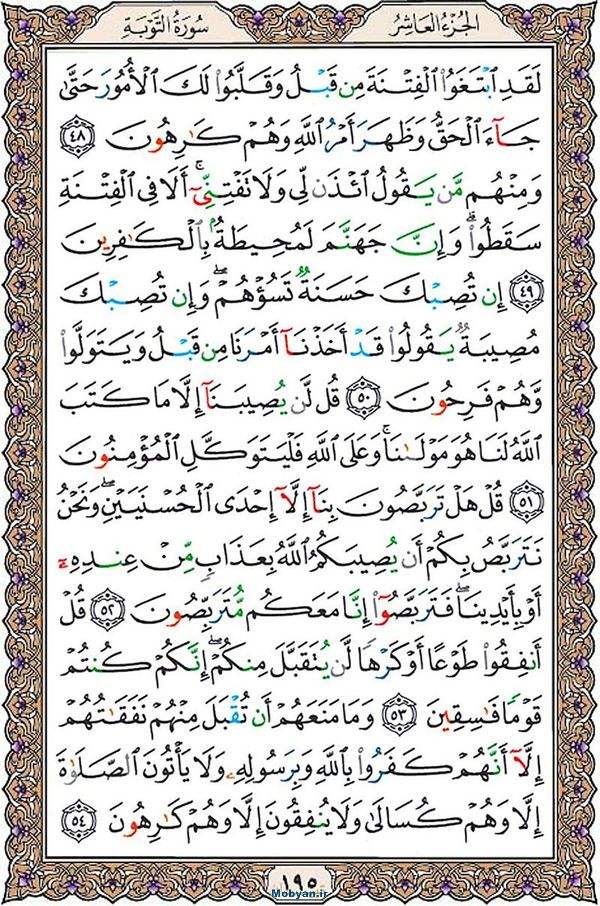 الجُزْءُ العَاشِرُ
سُورَةُ التَّوْبَةِ
لَقَدِ ٱبْتَغَوُا۟ ٱلْفِتْنَةَ مِن قَبْلُ وَقَلَّبُوا۟ لَكَ ٱلْأُمُورَ حَتَّىٰ
جَآءَ ٱلْحَقُّ وَظَهَرَ أَمْرُ ٱللَّهِ وَهُمْ كَٰرِهُونَ ٤٨
وَمِنْهُم مَّن يَقُولُ ٱئْذَن لِّى وَلَا تَفْتِنِّىٓ ۚ أَلَا فِى ٱلْفِتْنَةِ
سَقَطُوا۟ ۗ وَإِنَّ جَهَنَّمَ لَمُحِيطَةٌۢ بِٱلْكَٰفِرِينَ
٤٩ إِن تُصِبْكَ حَسَنَةٌ تَسُؤْهُمْ ۖ وَإِن تُصِبْكَ
مُصِيبَةٌ يَقُولُوا۟ قَدْ أَخَذْنَآ أَمْرَنَا مِن قَبْلُ وَيَتَوَلَّوا۟
وَّهُمْ فَرِحُونَ ٥٠ قُل لَّن يُصِيبَنَآ إِلَّا مَا كَتَبَ
ٱللَّهُ لَنَا هُوَ مَوْلَىٰنَا ۚ وَعَلَى ٱللَّهِ فَلْيَتَوَكَّلِ ٱلْمُؤْمِنُونَ
٥١ قُلْ هَلْ تَرَبَّصُونَ بِنَآ إِلَّآ إِحْدَى ٱلْحُسْنَيَيْنِ ۖ وَنَحْنُ
نَتَرَبَّصُ بِكُمْ أَن يُصِيبَكُمُ ٱللَّهُ بِعَذَابٍ مِّنْ عِندِهِۦٓ
أَوْ بِأَيْدِينَا ۖ فَتَرَبَّصُوٓا۟ إِنَّا مَعَكُم مُّتَرَبِّصُونَ ٥٢ قُلْ
أَنفِقُوا۟ طَوْعًا أَوْ كَرْهًا لَّن يُتَقَبَّلَ مِنكُمْ ۖ إِنَّكُمْ كُنتُمْ
قَوْمًا فَٰسِقِينَ ٥٣ وَمَا مَنَعَهُمْ أَن تُقْبَلَ مِنْهُمْ نَفَقَٰتُهُمْ
إِلَّآ أَنَّهُمْ كَفَرُوا۟ بِٱللَّهِ وَبِرَسُولِهِۦ وَلَا يَأْتُونَ ٱلصَّلَوٰةَ
إِلَّا وَهُمْ كُسَالَىٰ وَلَا يُنفِقُونَ إِلَّا وَهُمْ كَٰرِهُونَ ٥٤
١٩٥
Mobyan.ir